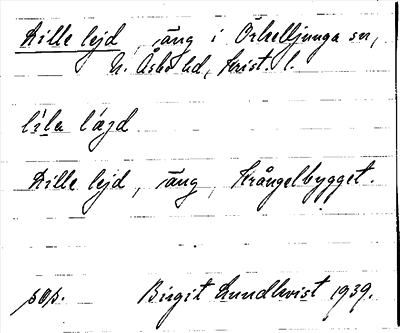 Lille lejd, äng i Örkelljunga sn,
N. Åsbo hd, Krist. l.
líla lǽjd
Lille lejd, äng, Krångelbygget.
sös.  Birgit Lundkvist 1939.